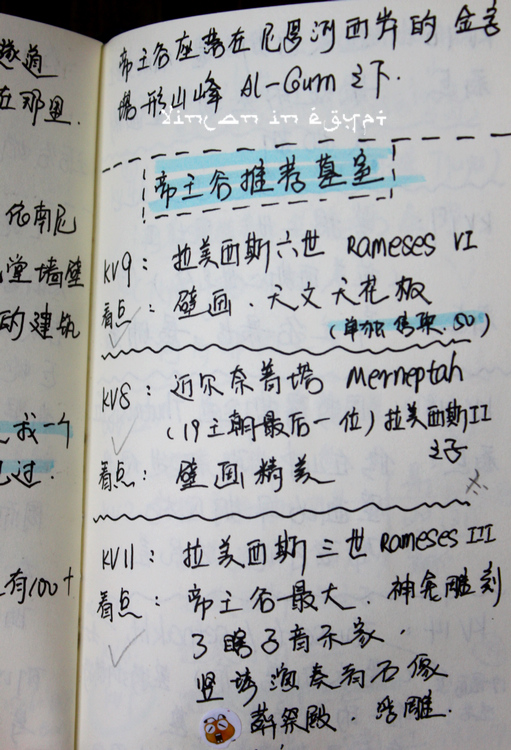 遂道
在那里.
依南尼
堂墙壁
的建筑
找一个
过.
有100+
帝王谷座落在尼罗河西岸的金字
塔形山峰 Al-Gurn 之下.
yinian in égypt
帝王谷推荐墓室
KV9: 拉美西斯六世 Rameses VI
看点: 壁画.天文天花板
(单独售票.50)
KV8: 迈尔奈普塔 Merneptah
(19王朝最后一位)拉美西斯II
之子
看点: 壁画精美
KV11: 拉美西斯三世 Rameses III
看点: 帝王谷最大.神龛雕刻
了瞎子音乐家.
竖琴演奏者石像
祭殿.浮雕.